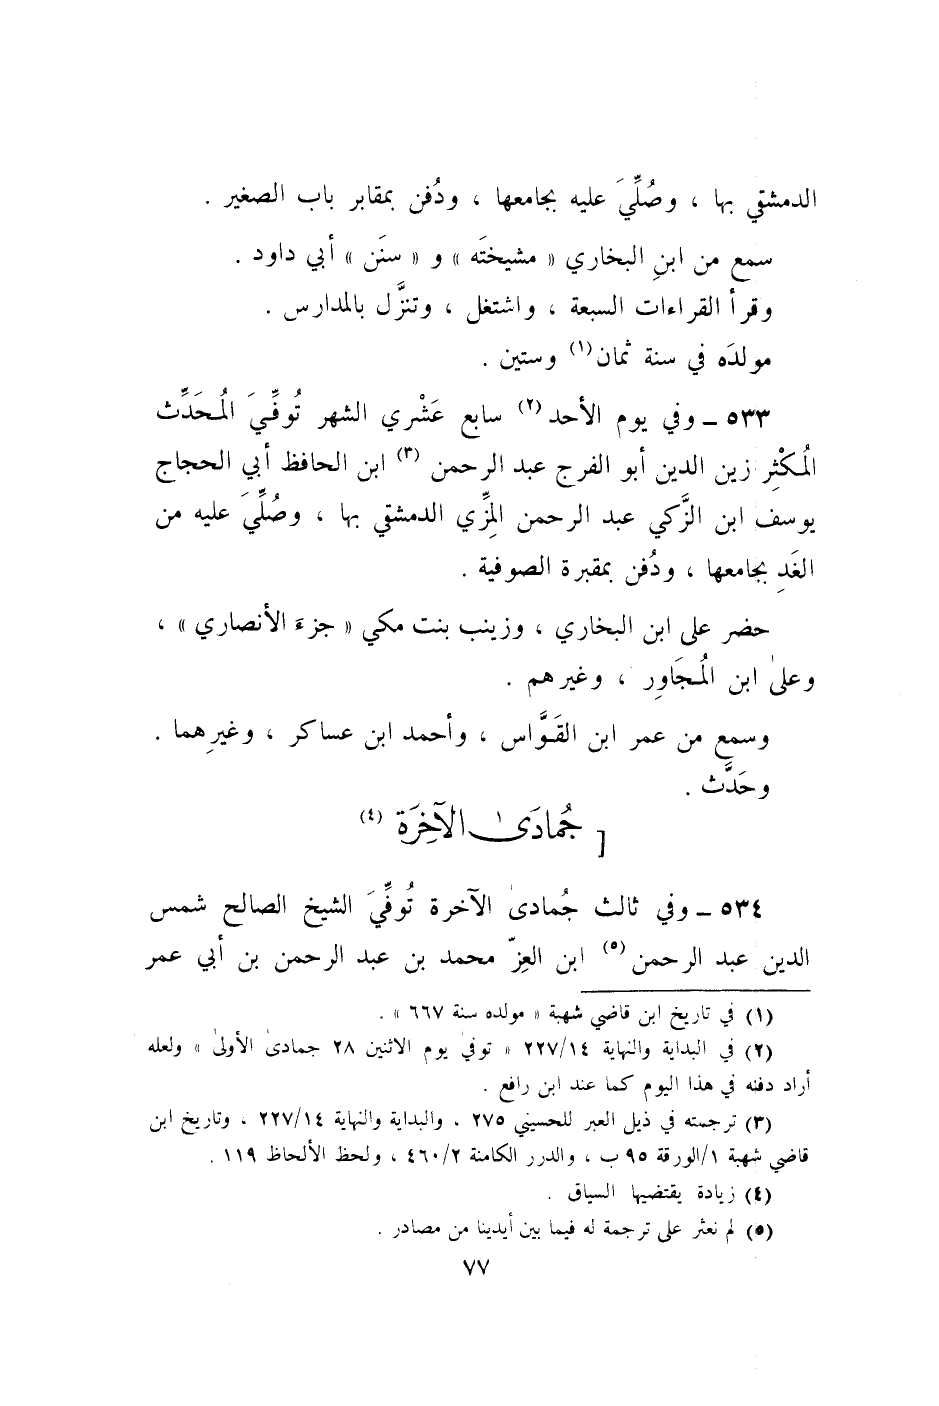 الدمشقي بها ، وصُلِّيَ عليه بجامعها ، ودُفن بمقابر باب الصغير .
سمع من ابنِ البخاري « مشيختَه » و « سنَن » أبي داود .
وقرأ القراءات السبعة ، واشتغل ، وتنزَّل بالمدارس .
مولدَه في سنة ثمان(١) وستين .
٥٣٣ ـ وفي يوم الأحد(٢) سابع عَشْري الشهر تُوفِّيَ المُحَدِّث
المُكْثِر زين الدين أبو الفرج عبد الرحمن(٣) ابن الحافظ أبي الحجاج
يوسف ابن الزَّكي عبد الرحمن المِزِّي الدمشقي بها ، وصُلِّيَ عليه من
الغَدِ بجامعها ، ودُفن بمقبرة الصوفية .
حضر على ابن البخاري ، وزينب بنت مكي « جزءَ الأنصاري » ،
وعلىٰ ابن المُجَاوِر ، وغيرهم .
وسمع من عمر ابن القَوَّاس ، وأحمد ابن عساكر ، وغيرِهما .
وحَدَّث .
[ جُمادَىٰ الآخِرَة (٤)
٥٣٤ ـ وفي ثالث جُمادىٰ الآخرة تُوفِّيَ الشيخ الصالح شمس
الدين عبد الرحمن(٥) ابن العِزّ محمد بن عبد الرحمن بن أبي عمر
(١) في تاريخ ابن قاضي شهبة « مولده سنة ٦٦٧ » .
(٢) في البداية والنهاية ٢٢٧/١٤ « توفي يوم الاثنين ٢٨ جمادىٰ الأولىٰ » ولعله
أراد دفنه في هذا اليوم كما عند ابن رافع .
(٣) ترجمته في ذيل العبر للحسيني ٢٧٥ ، والبداية والنهاية ٢٢٧/١٤ ، وتاريخ ابن
قاضي شهبة ١/الورقة ٩٥ ب ، والدرر الكامنة ٤٦٠/٢ ، ولحظ الألحاظ ١١٩ .
(٤) زيادة يقتضيها السياق .
(٥) لم نعثر على ترجمة له فيما بين أيدينا من مصادر .
٧٧